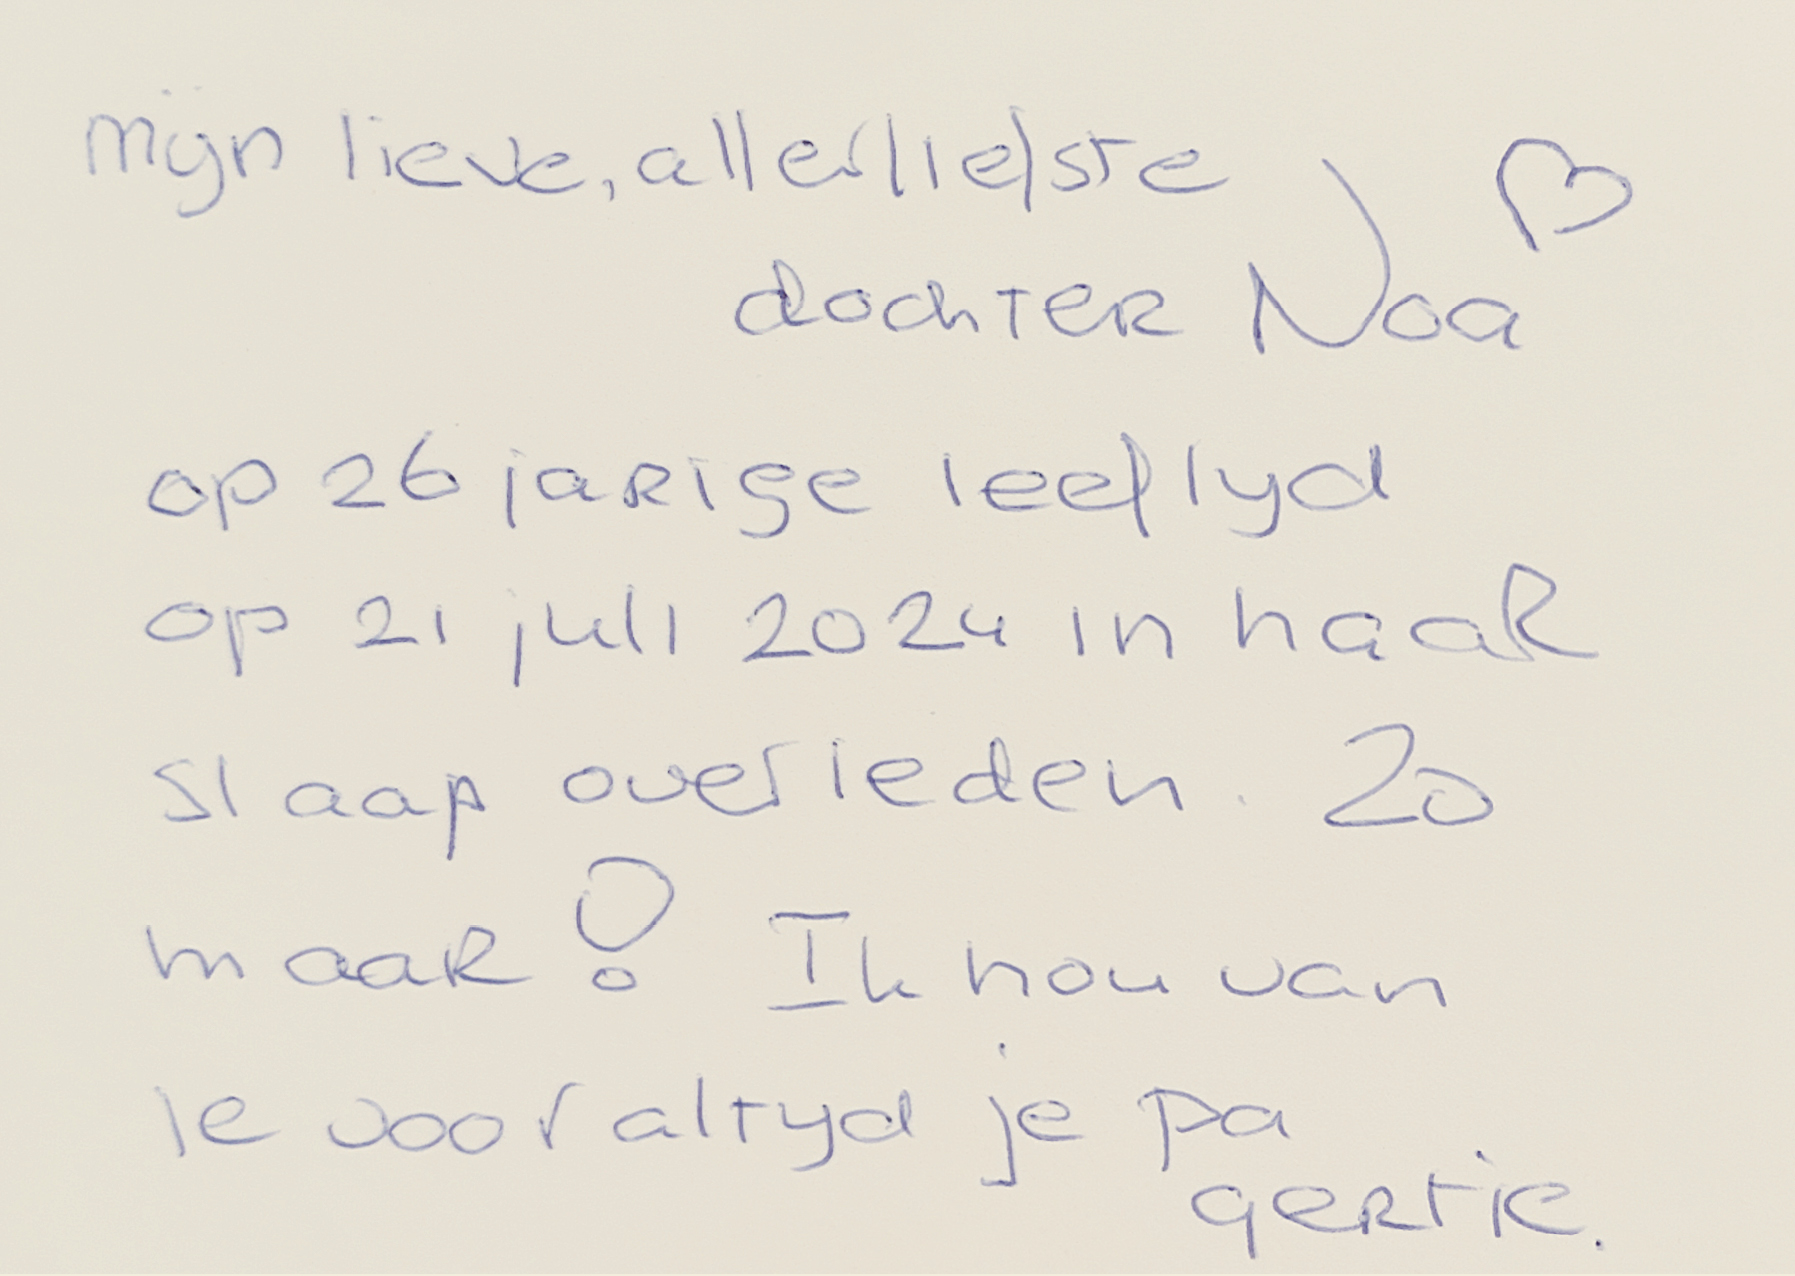 mijn lieve, allerliefste
dochter Noa
op 26 jarige leeftyd
op 21 juli 2024 in haar
slaap overleden. Zo
maar! Ik hou van
je voor altyd je pa
gertie.